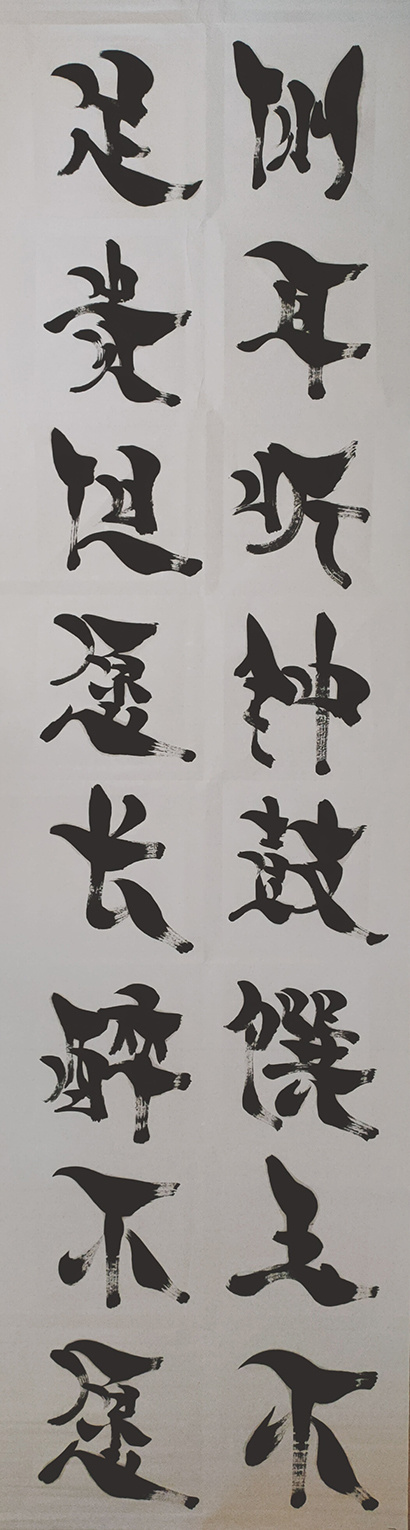 侧耳听钟鼓馔主不
足贵但愿长醉不愿